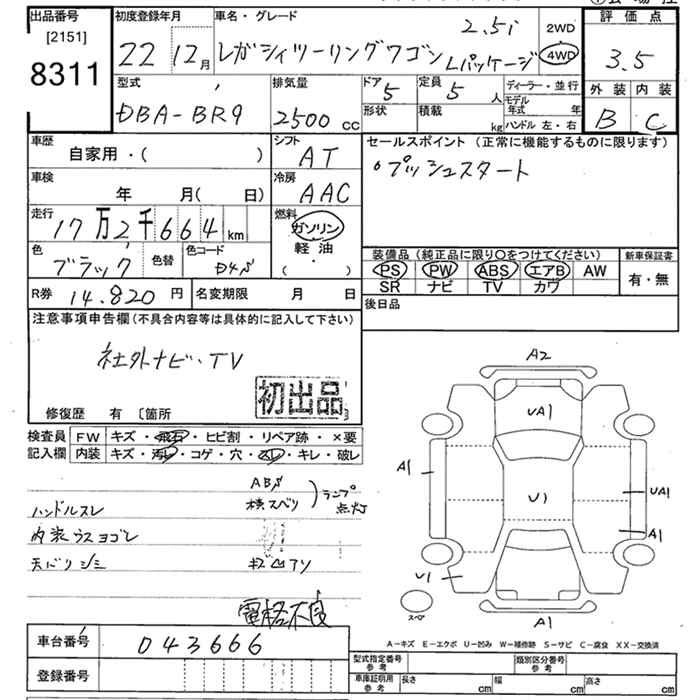 出品番号
[2151]
8311
初度登録年月
22 12月
車名・グレード
レガシィツーリングワゴン
2.5i
Lパッケージ
2WD
4WD
評価点
3.5
外装 内装
B C
型式
DBA-BR9
排気量
2500 cc
ドア 5
形状
定員 5 人
積載 kg
ディーラー・並行
モデル年式 年
ハンドル 左・右
車歴
自家用・( )
シフト
AT
車検
年 月( 日)
冷房
AAC
走行
17万2千664 km
燃料
ガソリン
軽油
・( )
色
ブラック
色替
色コード
D4S
R券 14.820 円
名変期限 月 日
セールスポイント(正常に機能するものに限ります)
。プッシュスタート
装備品(純正品に限り○をつけてください)
PS PW ABS エアB AW
SR ナビ TV カワ
新車保証書
有・無
後日品
注意事項申告欄(不具合内容等は具体的に記入して下さい)
社外ナビ・TV
初出品
修復歴 有 〔箇所
検査員記入欄
FW キズ・飛石・ヒビ割・リペア跡・×要
内装 キズ・汚レ・コゲ・穴・スレ・キレ・破レ
ABS
横スベリ
ランプ点灯
ハンドルスレ
内装ウスヨゴレ
天バリシミ
電格不良
車台番号 043666
登録番号
A2
UA1
A1
U1
UA1
A1
U1
スペア
A1
A-キズ E-エクボ U-凹み W-補修跡 S-サビ C-腐食 XX-交換済
型式指定番号 参考
類別区分番号 参考
車庫証明用 参考
長さ cm 幅 cm 高さ cm